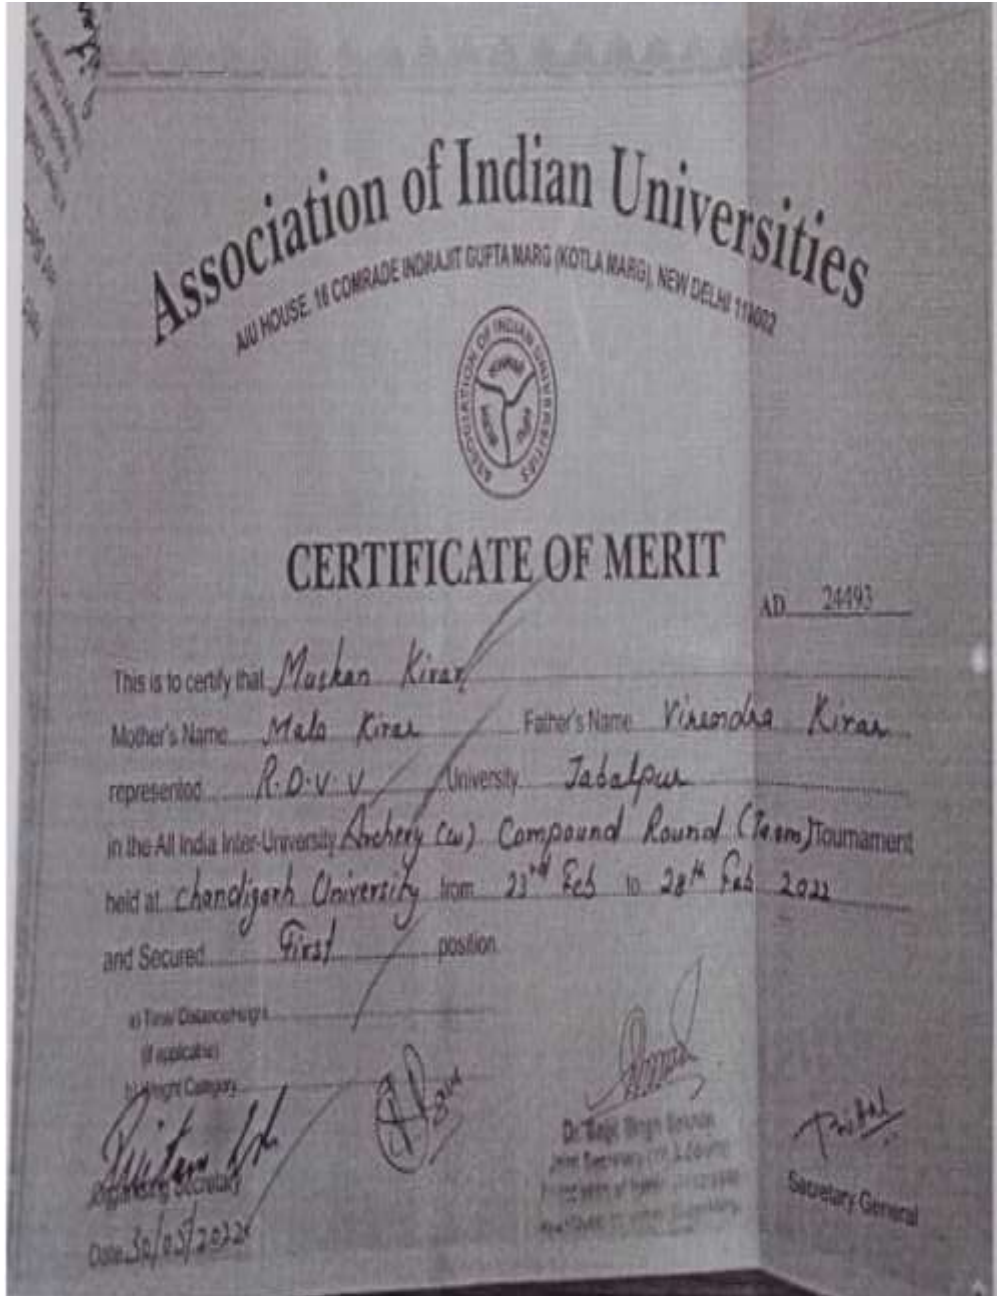 Association of Indian Universities
AIU HOUSE, 16 COMRADE INDRAJIT GUPTA MARG (KOTLA MARG), NEW DELHI 110002
ASSOCIATION OF INDIAN UNIVERSITIES
CERTIFICATE OF MERIT
AD 24493
This is to certify that Muskan Kirar
Mother's Name Mala Kirar Father's Name Virendra Kirar
represented R.D.V.V University Jabalpur
in the All India Inter-University Archery (w) Compound Round (Team) Tournament
held at Chandigarh University from 23rd Feb to 28th Feb 2022
and Secured First position
a) Time/Distance/Height
(if applicable)
b) Weight Category
Organising Secretary
Secretary General
Date 30/05/2022